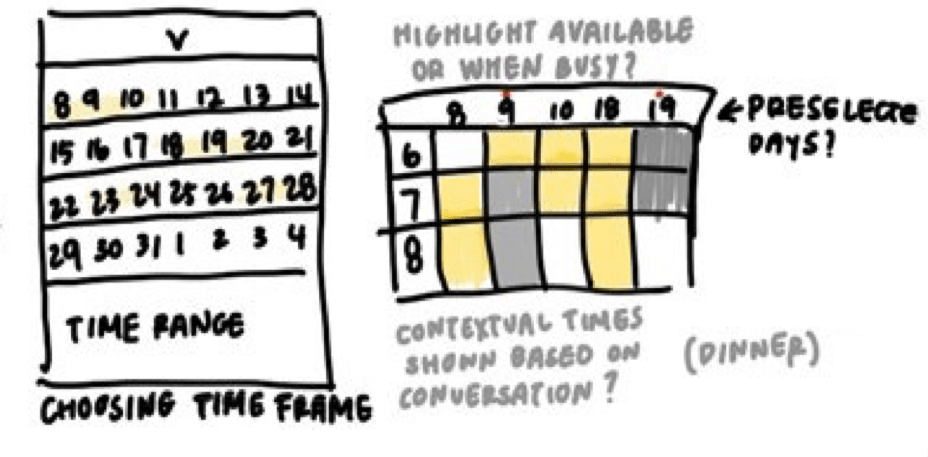 V
8 9 10 11 12 13 14
15 16 17 18 19 20 21
22 23 24 25 26 27 28
29 30 31 1 2 3 4
TIME RANGE
CHOOSING TIME FRAME
HIGHLIGHT AVAILABLE
OR WHEN BUSY?
8 9 10 18 19
6
7
8
← PRESELECTE
DAYS?
CONTEXTUAL TIMES
SHOWN BASED ON
CONVERSATION?
(DINNER)